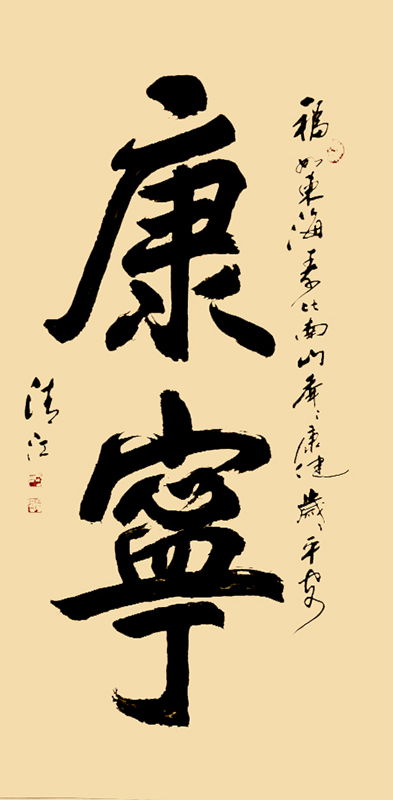 福如東海壽比南山年〻康健歲〻平安
康寧
清江